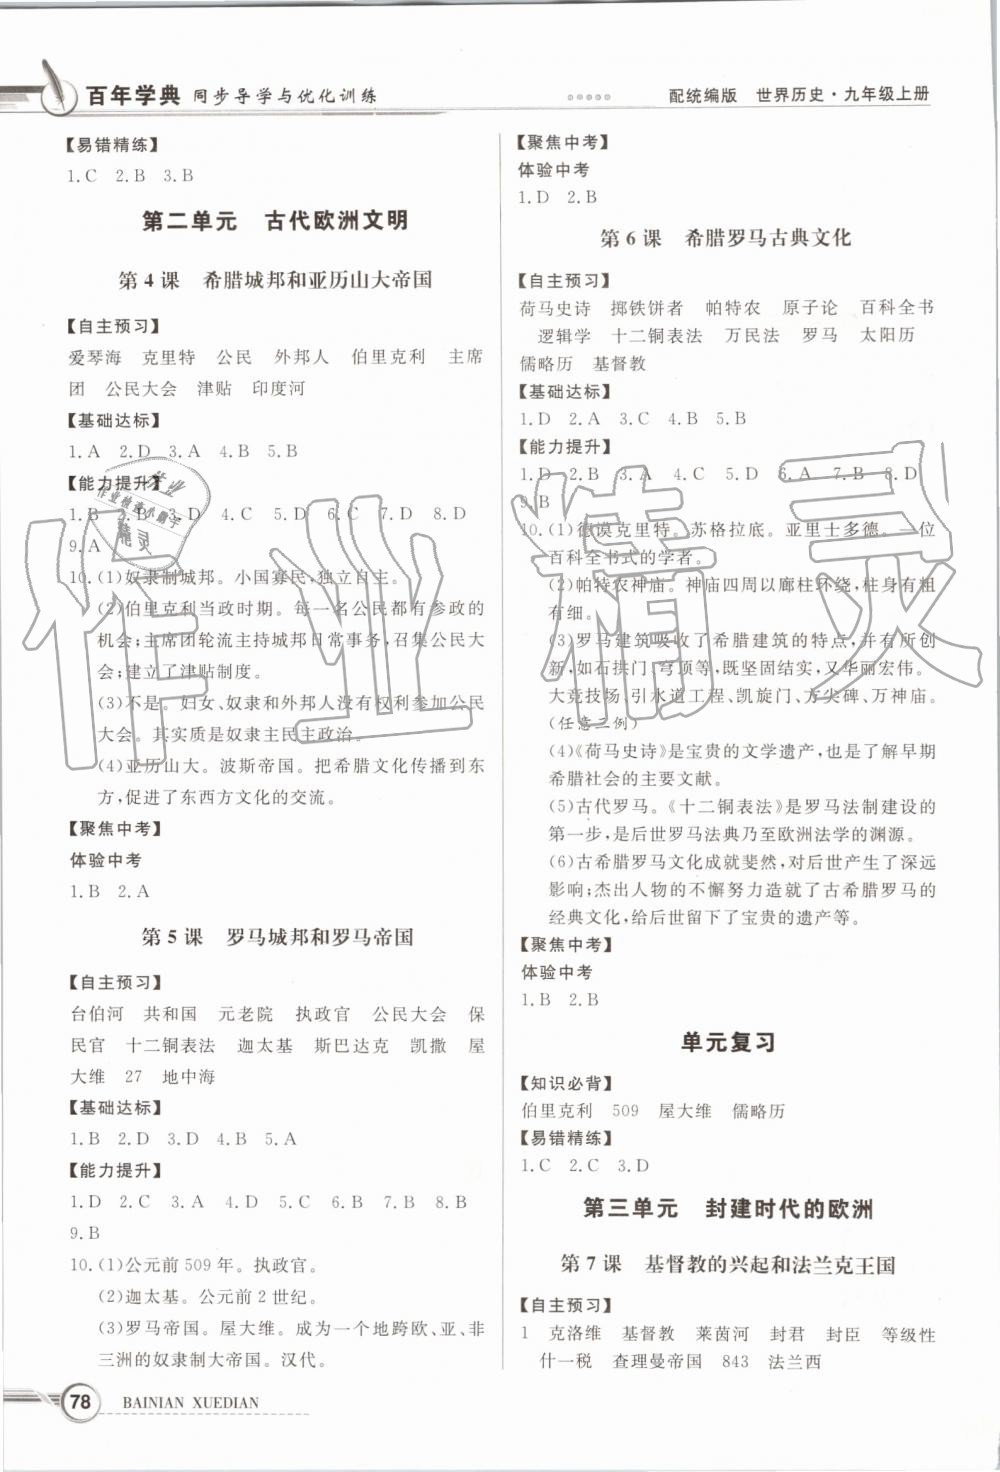 百年学典 同步导学与优化训练
配统编版 世界历史·九年级上册
【易错精练】
1.C 2.B 3.B
第二单元 古代欧洲文明
第4课 希腊城邦和亚历山大帝国
【自主预习】
爱琴海 克里特 公民 外邦人 伯里克利 主席
团 公民大会 津贴 印度河
【基础达标】
1.A 2.D 3.A 4.B 5.B
【能力提升】
1.B 2.B 3.D 4.C 5.D 6.C 7.D 8.D
9.A
10.(1)奴隶制城邦。小国寡民,独立自主。
(2)伯里克利当政时期。每一名公民都有参政的
机会;主席团轮流主持城邦日常事务,召集公民大
会;建立了津贴制度。
(3)不是。妇女、奴隶和外邦人没有权利参加公民
大会。其实质是奴隶主民主政治。
(4)亚历山大。波斯帝国。把希腊文化传播到东
方,促进了东西方文化的交流。
【聚焦中考】
体验中考
1.B 2.A
第5课 罗马城邦和罗马帝国
【自主预习】
台伯河 共和国 元老院 执政官 公民大会 保
民官 十二铜表法 迦太基 斯巴达克 凯撒 屋
大维 27 地中海
【基础达标】
1.B 2.D 3.D 4.B 5.A
【能力提升】
1.D 2.C 3.A 4.D 5.D 6.C 7.B 8.B
9.B
10.(1)公元前509年。执政官。
(2)迦太基。公元前2世纪。
(3)罗马帝国。屋大维。成为一个地跨欧、亚、非
三洲的奴隶制大帝国。汉代。
78 BAINIAN XUEDIAN
【聚焦中考】
体验中考
1.D 2.B
第6课 希腊罗马古典文化
【自主预习】
荷马史诗 掷铁饼者 帕特农 原子论 百科全书
逻辑学 十二铜表法 万民法 罗马 太阳历
儒略历 基督教
【基础达标】
1.D 2.A 3.C 4.B 5.B
【能力提升】
1.D 2.B 3.C 4.C 5.D 6.A 7.B 8.D
9.B
10.(1)德谟克里特。苏格拉底。亚里士多德。一位
百科全书式的学者。
(2)帕特农神庙。神庙四周以廊柱环绕,柱身有粗
有细。
(3)罗马建筑吸收了希腊建筑的特点,并有所创
新,如石拱门、穹顶等,既坚固结实,又华丽宏伟。
大竞技场、引水道工程、凯旋门、方尖碑、万神庙。
(任意二例)
(4)《荷马史诗》是宝贵的文学遗产,也是了解早期
希腊社会的主要文献。
(5)古代罗马。《十二铜表法》是罗马法制建设的
第一步,是后世罗马法典乃至欧洲法学的渊源。
(6)古希腊罗马文化成就斐然,对后世产生了深远
影响;杰出人物的不懈努力造就了古希腊罗马的
经典文化,给后世留下了宝贵的遗产等。
【聚焦中考】
体验中考
1.B 2.B
单元复习
【知识必背】
伯里克利 509 屋大维 儒略历
【易错精练】
1.C 2.C 3.D
第三单元 封建时代的欧洲
第7课 基督教的兴起和法兰克王国
【自主预习】
1 克洛维 基督教 莱茵河 封君 封臣 等级性
什一税 查理曼帝国 843 法兰西
作业精灵